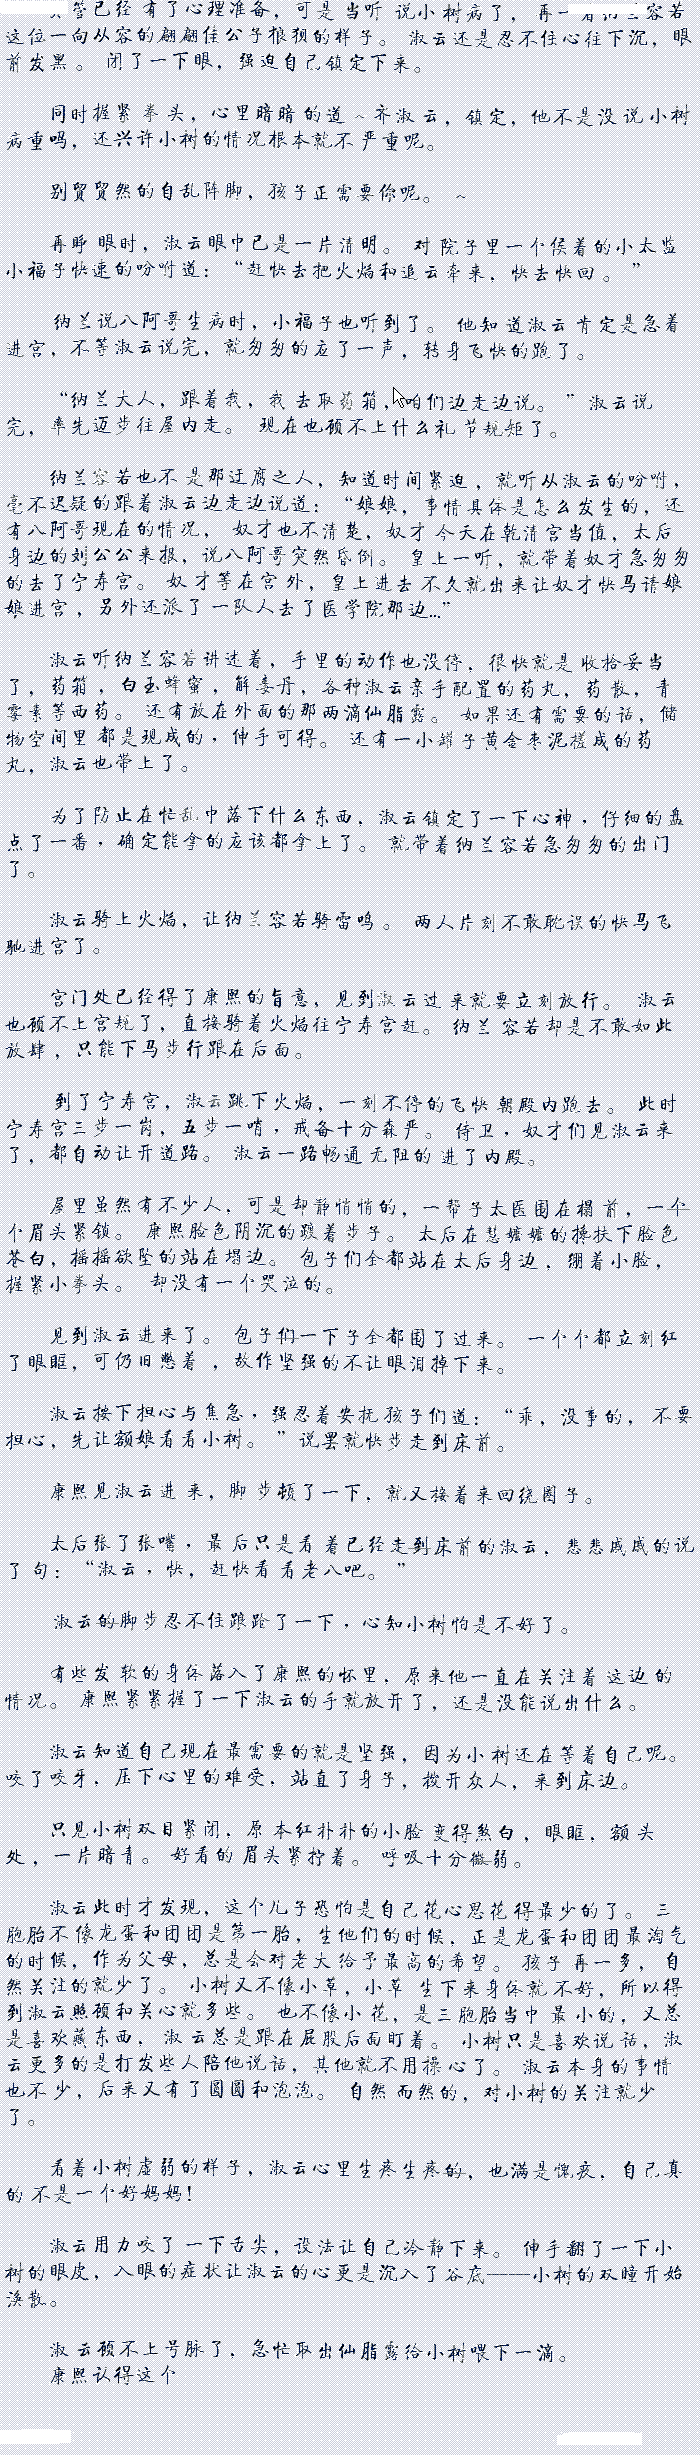 管已经有了心理准备，可是当听说小树病了，再一看纳兰容若
这位一向从容的翩翩佳公子狼狈的样子。淑云还是忍不住心往下沉，眼
前发黑。闭了一下眼，强迫自己镇定下来。
同时握紧拳头，心里暗暗的道～齐淑云，镇定，他不是没说小树
病重吗，还兴许小树的情况根本就不严重呢。
别贸贸然的自乱阵脚，孩子正需要你呢。～
再睁眼时，淑云眼中已是一片清明。对院子里一个侯着的小太监
小福子快速的吩咐道：“赶快去把火焰和追云牵来，快去快回。”
纳兰说八阿哥生病时，小福子也听到了。他知道淑云肯定是急着
进宫，不等淑云说完，就匆匆的应了一声，转身飞快的跑了。
“纳兰大人，跟着我，我去取药箱，咱们边走边说。”淑云说
完，率先迈步往屋内走。现在也顾不上什么礼节规矩了。
纳兰容若也不是那迂腐之人，知道时间紧迫，就听从淑云的吩咐，
毫不迟疑的跟着淑云边走边说道：“娘娘，事情具体是怎么发生的，还
有八阿哥现在的情况，奴才也不清楚，奴才今天在乾清宫当值，太后
身边的刘公公来报，说八阿哥突然昏倒。皇上一听，就带着奴才急匆匆
的去了宁寿宫。奴才等在宫外，皇上进去不久就出来让奴才快马请娘
娘进宫，另外还派了一队人去了医学院那边…”
淑云听纳兰容若讲述着，手里的动作也没停，很快就是收拾妥当
了，药箱，白玉蜂蜜，解毒丹，各种淑云亲手配置的药丸，药散，青
霉素等西药。还有放在外面的那两滴仙脂露。如果还有需要的话，储
物空间里都是现成的，伸手可得。还有一小罐子黄金枣泥搓成的药
丸，淑云也带上了。
为了防止在忙乱中落下什么东西，淑云镇定了一下心神，仔细的盘
点了一番，确定能拿的应该都拿上了。就带着纳兰容若急匆匆的出门
了。
淑云骑上火焰，让纳兰容若骑雷鸣。两人片刻不敢耽误的快马飞
驰进宫了。
宫门处已经得了康熙的旨意，见到淑云过来就要立刻放行。淑云
也顾不上宫规了，直接骑着火焰往宁寿宫赶。纳兰容若却是不敢如此
放肆，只能下马步行跟在后面。
到了宁寿宫，淑云跳下火焰，一刻不停的飞快朝殿内跑去。此时
宁寿宫三步一岗，五步一哨，戒备十分森严。侍卫，奴才们见淑云来
了，都自动让开道路。淑云一路畅通无阻的进了内殿。
屋里虽然有不少人，可是却静悄悄的，一帮子太医围在榻前，一个
个眉头紧锁。康熙脸色阴沉的踱着步子。太后在慧嬷嬷的搀扶下脸色
苍白，摇摇欲坠的站在塌边。包子们全都站在太后身边，绷着小脸，
握紧小拳头。却没有一个哭泣的。
见到淑云进来了。包子们一下子全都围了过来。一个个都立刻红
了眼眶，可仍旧憋着，故作坚强的不让眼泪掉下来。
淑云按下担心与焦急，强忍着安抚孩子们道：“乖，没事的，不要
担心，先让额娘看看小树。”说罢就快步走到床前。
康熙见淑云进来，脚步顿了一下，就又接着来回绕圈子。
太后张了张嘴，最后只是看着已经走到床前的淑云，悲悲戚戚的说
了句：“淑云，快，赶快看看老八吧。”
淑云的脚步忍不住踉跄了一下，心知小树怕是不好了。
有些发软的身体落入了康熙的怀里，原来他一直在关注着这边的
情况。康熙紧紧握了一下淑云的手就放开了，还是没能说出什么。
淑云知道自己现在最需要的就是坚强，因为小树还在等着自己呢。
咬了咬牙，压下心里的难受，站直了身子，拨开众人，来到床边。
只见小树双目紧闭，原本红扑扑的小脸变得煞白，眼眶，额头
处，一片暗青。好看的眉头紧拧着。呼吸十分微弱。
淑云此时才发现，这个儿子恐怕是自己花心思花得最少的了。三
胞胎不像龙蛋和团团是第一胎，生他们的时候，正是龙蛋和团团最淘气
的时候，作为父母，总是会对老大给予最高的希望。孩子再一多，自
然关注的就少了。小树又不像小草，小草生下来身体就不好，所以得
到淑云照顾和关心就多些。也不像小花，是三胞胎当中最小的，又总
是喜欢藏东西，淑云总是跟在屁股后面盯着。小树只是喜欢说话，淑
云更多的是打发些人陪他说话，其他就不用操心了。淑云本身的事情
也不少，后来又有了圆圆和泡泡。自然而然的，对小树的关注就少
了。
看着小树虚弱的样子，淑云心里生疼生疼的，也满是愧疚，自己真
的不是一个好妈妈！
淑云用力咬了一下舌尖，设法让自己冷静下来。伸手翻了一下小
树的眼皮，入眼的症状让淑云的心更是沉入了谷底——小树的双瞳开始
涣散。
淑云顾不上号脉了，急忙取出仙脂露给小树喂下一滴。
康熙认得这个